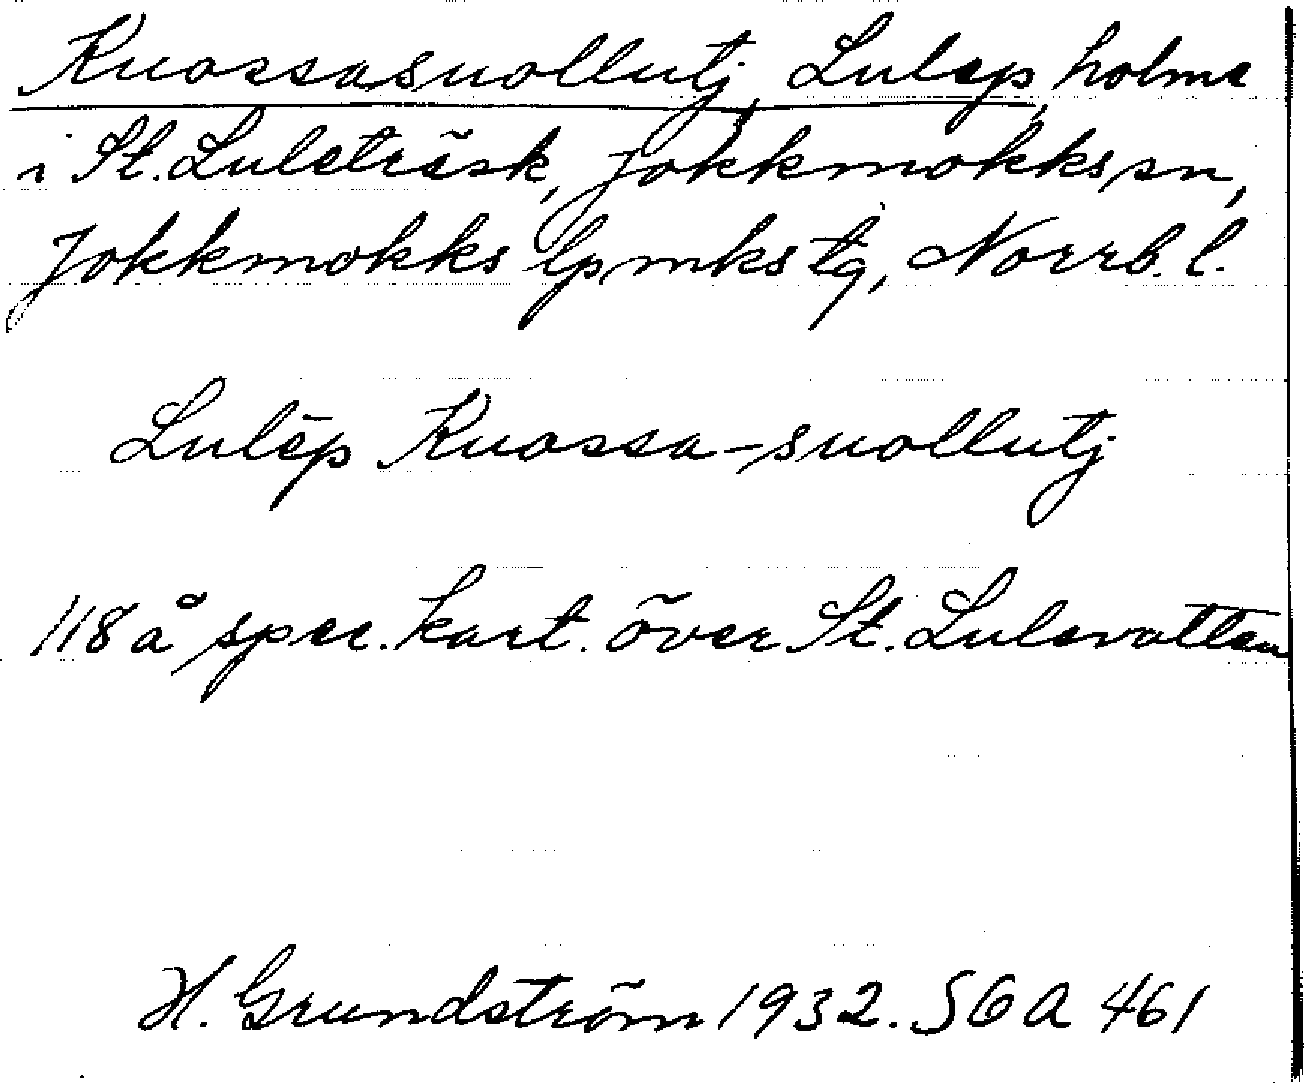 Kuossasuollutj, Lulep, holme
i St. Luleträsk, Jokkmokks sn,
Jokkmokks lpmks tg, Norrb. l.
Lulēp Kuossa-suollutj
118 å spec. kart. över St. Lulevatten
H. Grundström 1932. SOA 461